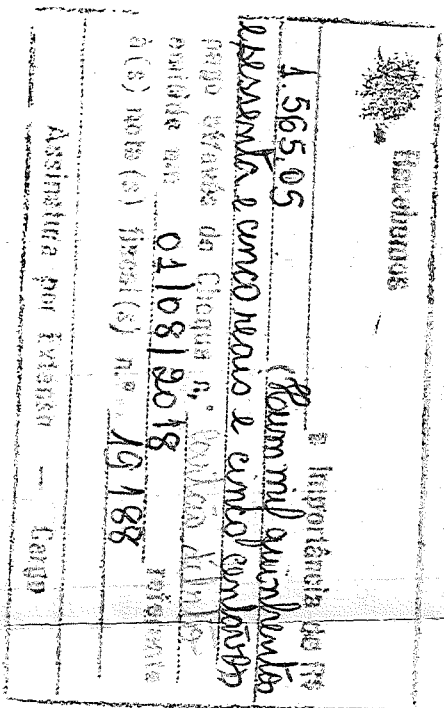 Recebemos
a Importância de R$
1.565,05 (Hum mil quinhentos
e sessenta e cinco reais e cinco centavos
pago através do Cheque n.º
emitido em 01/08/2018 referente
à(s) nota(s) fiscal(s) n.º 19188
Assinatura por Extenso — Cargo